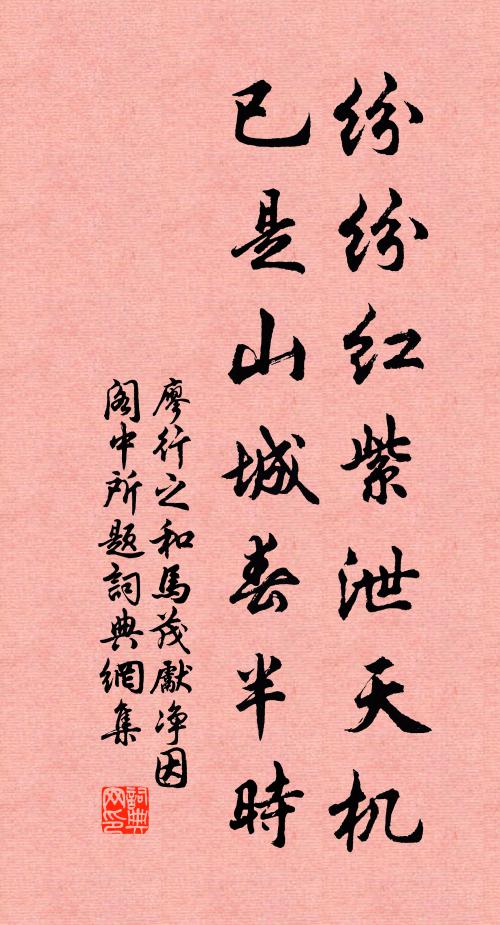 纷纷红紫泄天机
已是山城春半時
廖行之和馬茂獻净因
阁中所题詞典網集
詞典网印